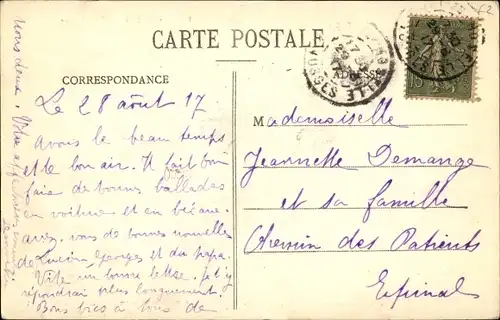 CARTE POSTALE
CORRESPONDANCE
ADRESSE
Le 28 août 17
Avons le beau temps
et le bon air. Il fait bon
faie de bonnes ballades
en voiture et en bécane.
avez. vous de bonnes nouvelles
de Lucien Georges et du papa.
Vite un bonne lettre. je t'y
répondrai plus longuement.
Bons bies à tous de
nous deux.
Mademoiselle
Jeannette Demange
et sa famille
Chemin des Patients
Epinal
15